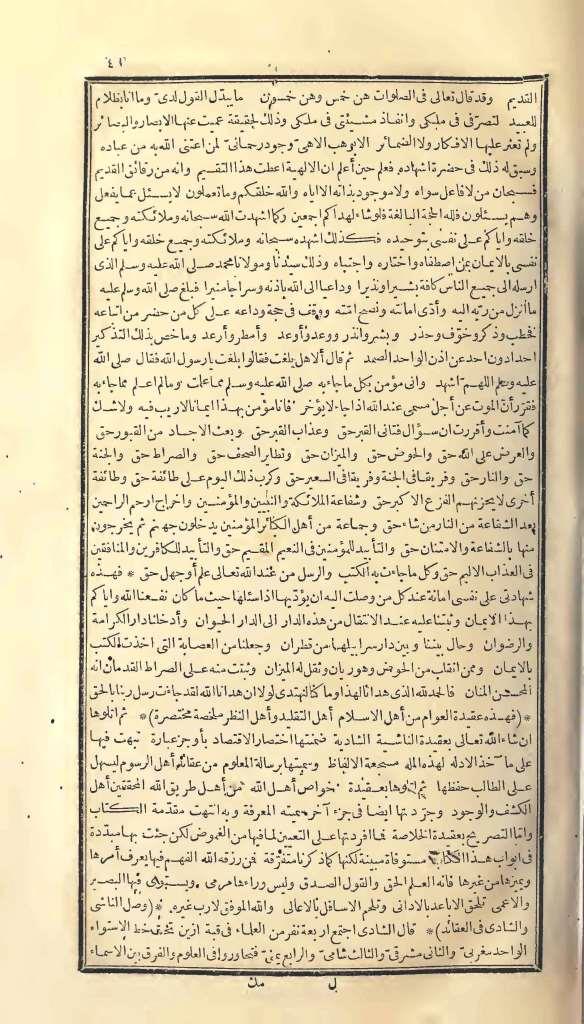 ٤١
القديم وقد قال تعالى فى الصلوات هن خمس وهن خمسون ما يبدّل القول لدىّ وما انا بظلام
للعبيد لتصرّفى فى ملكى وانفاذ مشيئتى فى ملكى وذلك لحقيقة عميت عنها الابصار والبصائر
ولم تعثر عليها الافكار ولا الضمائر الا بوهب الاهى وجود رحمانى لمن اعتنى الله به من عباده
وسبق له ذلك فى حضرة اشهاده فعلم حين أعلم ان الالوهية اعطت هذا التقسيم وانه من رقائق القديم
فسبحان من لا فاعل سواه ولا موجود بذاته الا اياه والله خلقكم وما تعملون لا يسئل عما يفعل
وهم يسئلون فلله الحجة البالغة فلو شاء لهداكم اجمعين وكما اشهدت الله سبحانه وملائكته وجميع
خلقه واياكم على نفسى بتوحيده فكذلك اشهده سبحانه وملائكته وجميع خلقه واياكم على
نفسى بالايمان بمن اصطفاه واختاره واجتباه وذلك سيدنا ومولانا محمد صلى الله عليه وسلم الذى
ارسله الى جميع الناس كافة بشيرا ونذيرا وداعيا الى الله باذنه وسراجا منيرا فبلغ صلى الله وسلم عليه
ما أنزل من ربه اليه وأدى امانته ونصح امته ووقف فى حجة وداعه على كل من حضر من اتباعه
فخطب وذكر وخوّف وحذر وبشر وانذر ووعد وأوعد وأمطر وأرعد وما خص بذلك التذكير
احدا دون احد عن اذن الواحد الصمد ثم قال ألا هل بلغت فقالوا بلغت يا رسول الله فقال صلى الله
عليه وسلم اللهم اشهد وانى مؤمن بكل ما جاء به صلى الله عليه وسلم مما علمت ومالم اعلم مما جاء به
فقرّر أن الموت عن أجل مسمى عند الله اذا جاء لا يؤخر فانا مؤمن بهذا ايمانا لا ريب فيه ولا شك
كما آمنت وأقررت ان سؤال فتانى القبر حق وعذاب القبر حق وبعث الاجساد من القبور حق
والعرض على الله حق والحوض حق والميزان حق وتطاير الصحف حق والصراط حق والجنة
حق والنار حق وفريقا فى الجنة وفريقا فى السعير حق وكرب ذلك اليوم على طائفة حق وطائفة
أخرى لا يحزنهم الفزع الاكبر حق وشفاعة الملائكة والنبيين والمؤمنين واخراج ارحم الراحمين
بعد الشفاعة من النار من شاء حق وجماعة من أهل الكبائر المؤمنين يدخلون جهنم ثم يخرجون
منها بالشفاعة والامتنان حق والتأبيد للمؤمنين فى النعيم المقيم حق والتأبيد للكافرين والمنافقين
فى العذاب الاليم حق وكل ما جاءت به الكتب والرسل من عند الله تعالى علم أو جهل حق * فهذه
شهادتى على نفسى امانة عند كل من وصلت اليه ان يؤدّيها اذا سئلها حيث ما كان نفعنا الله واياكم
بهذا الايمان وثبتنا عليه عند الانتقال من هذه الدار الى الدار الحيوان وأدخلنا دار الكرامة
والرضوان وحال بيننا وبين دار سرابيلها من قطران وجعلنا من العصابة التى اخذت الكتب
بالايمان وممن انقلب من الحوض وهو ريان وثقل له الميزان وثبتت منه على الصراط القدمان انه
المحسن المنان فالحمد لله الذى هدانا لهذا وما كنا لنهتدى لولا ان هدانا الله لقد جاءت رسل ربنا بالحق
*(فهذه عقيدة العوام من أهل الاسلام أهل التقليد وأهل النظر ملخصة مختصرة)* ثم اتلوها
ان شاء الله تعالى بعقيدة الناشية الشادية ضمنتها اختصار الاقتصاد بأوجز عبارة نبهت فيها
على مآخذ الادلة لهذه المله مسجعة الالفاظ وسميتها برسالة المعلوم من عقائد أهل الرسوم ليسهل
على الطالب حفظها ثم اتلوها بعقيدة خواص أهل الله من أهل طريق الله المحققين أهل
الكشف والوجود وجرّدتها ايضا فى جزء آخر سميته المعرفة وبه انتهت مقدّمة الكتاب
وأما التصريح بعقيدة الخلاصة فما افردتها على التعيين لما فيها من الغموض لكن جئت بها مبدّدة
فى ابواب هذا الكتاب مستوفاة مبينة لكنها كما ذكرنا متفرّقة فمن رزقه الله الفهم فيها يعرف أمرها
ويميزها من غيرها فانه العلم الحق والقول الصدق وليس وراءها مرمى ويستوى فيها البصير
والاعمى تلحق الاباعد بالادانى وتلحم الاسافل بالاعالى والله الموفق لا رب غيره *(وصل الناشى
والشادى فى العقائد)* قال الشادى اجتمع اربعة نفر من العلماء فى قبة ازين تحت خط الاستواء
الواحد مغربىّ والثانى مشرقىّ والثالث شامىّ والرابع يمنىّ فتجاوروا فى العلوم والفرق بين الاسماء
ل مك